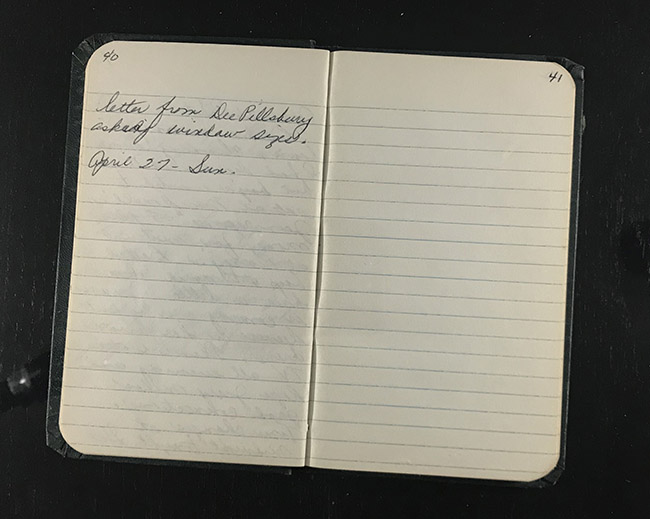 40
letter from Dee Pillsbury
asked of window sizes.
April 27 - Sun.
41